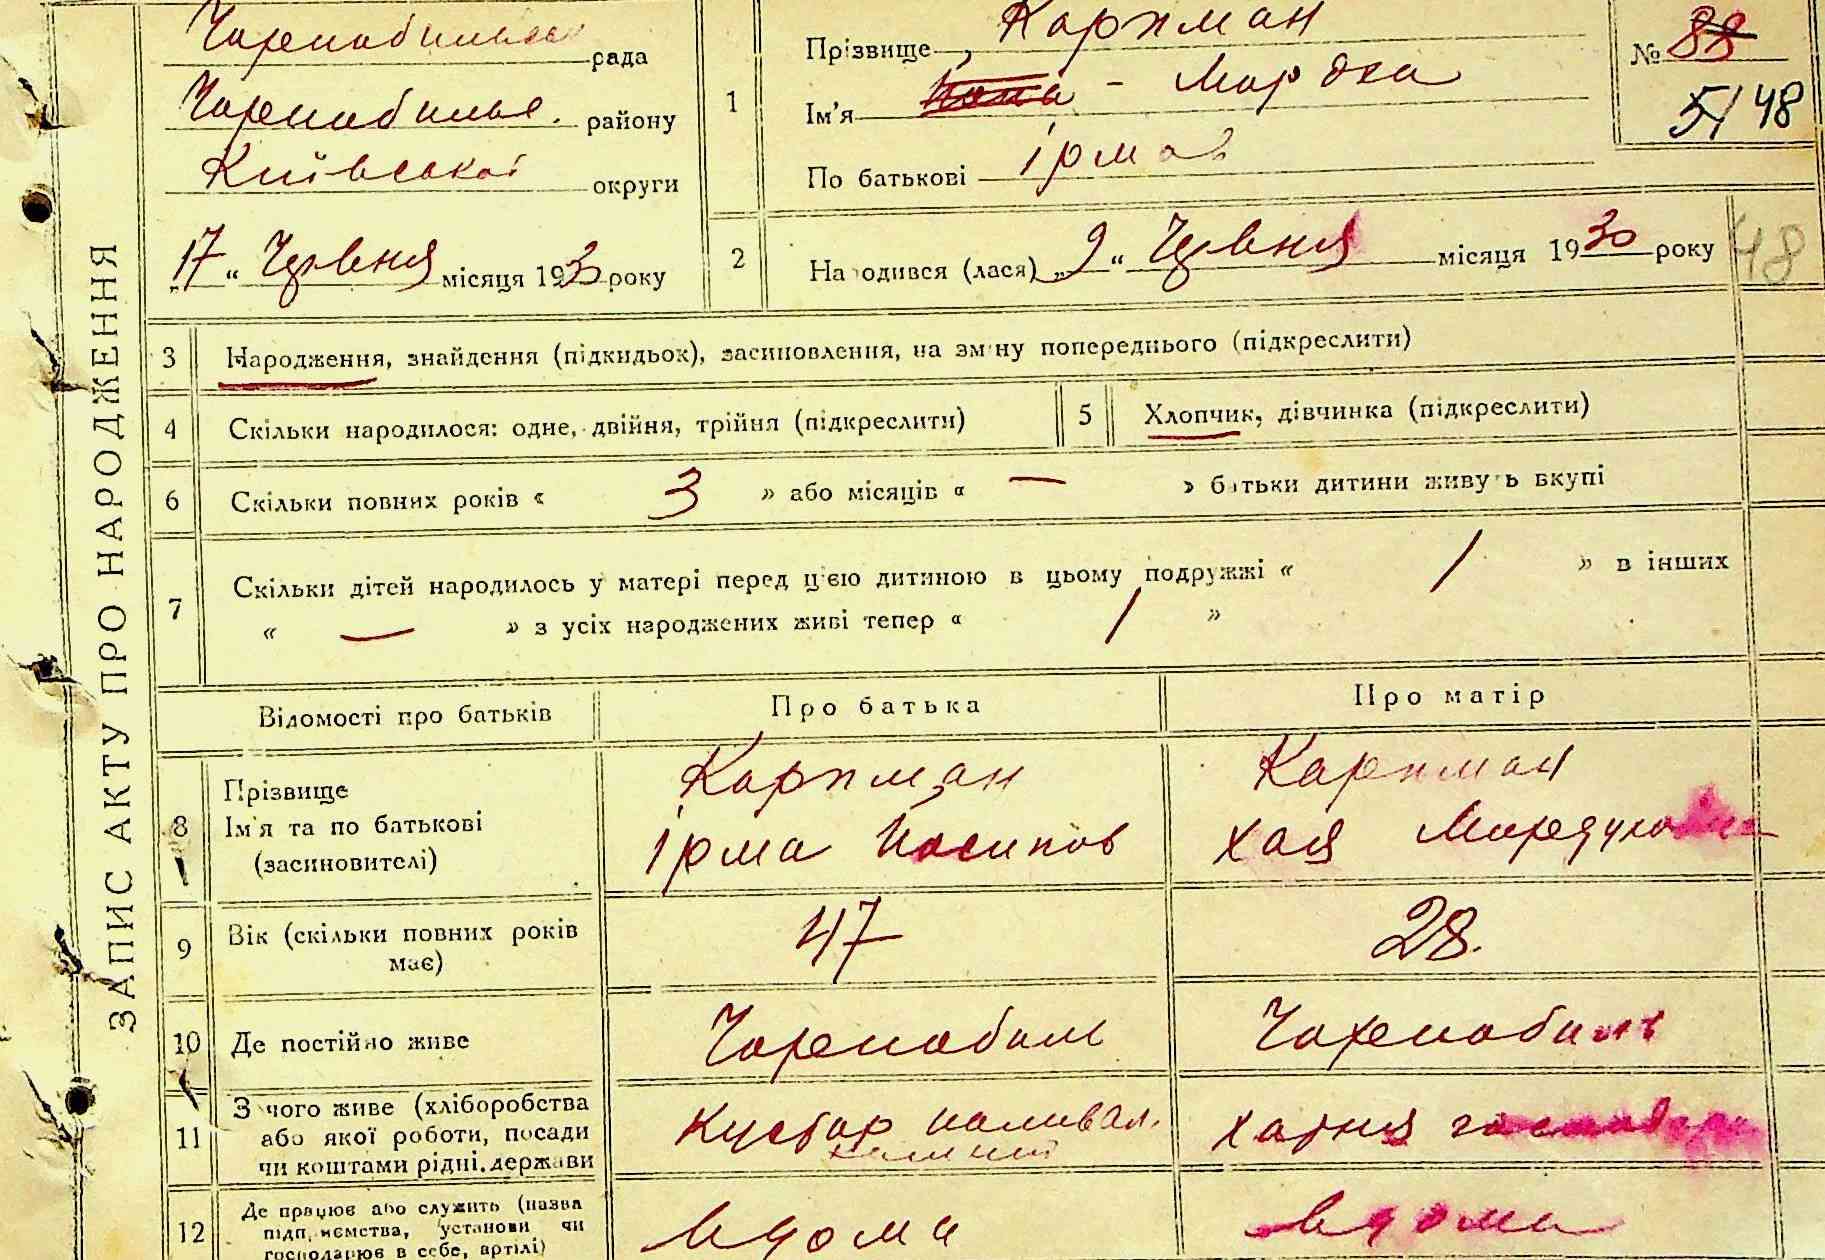 ЗАПИС АКТУ ПРО НАРОДЖЕННЯ
рада
району
Київської округи
„17“ Червня місяця 1930 року
1
Прізвище Карпман
Ім'я - Мордка
По батькові Ірмов
№ 88
51 48
2
Народився (лася) „9“ Червня місяця 1930 року
48
3 Народження, знайдення (підкидьок), засиновлення, на зміну попереднього (підкреслити)
4 Скільки народилося: одне, двійня, трійня (підкреслити)
5 Хлопчик, дівчинка (підкреслити)
6 Скільки повних років « 3 » або місяців « — » батьки дитини живуть вкупі
7 Скільки дітей народилось у матері перед цією дитиною в цьому подружжі « 1 » в інших
« — » з усіх народжених живі тепер « 1 »
Відомості про батьків
Про батька
Про матір
8 Прізвище
Ім'я та по батькові
(засиновителі)
Карпман
Ірма Йосипов
Карпман
Хая
9 Вік (скільки повних років
має)
47
28.
10 Де постійно живе
Чоренобиль
Чоренобиль
11 З чого живе (хліборобства
або якої роботи, посади
чи коштами рідні, держави
Кустар
хатня
12 Де працює або служить (назва
підприємства, установи чи
господарює в себе, артілі)
вдома
вдома